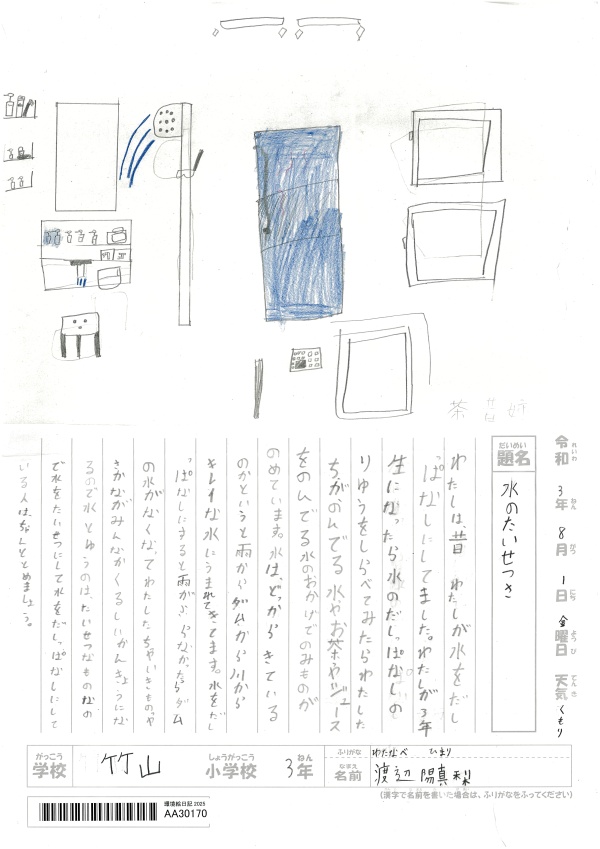 茶 昔 姉
令和 3年 8月 1日 金曜日 天気 くもり
れいわ ねん がつ にち ようび てんき
だいめい
題名
水のたいせつさ
わたしは、昔 わたしが水をだし
っぱなしにしてました。わたしが3年
生になったら水のだしっぱなしの
りゆうをしらべてみたらわたした
ちがのんでる 水やお茶やジュース
をのんでる水のおかげでのみものが
のめています。水は、どっからきている
のかというと雨からダムから川から
キレイな水にうまれてきてます。水をだし
っぱなしにすると雨がふらなかったらダム
の水がなくなってわたしたちやいきものや
さかながみんながくるしいかんきょうにな
るので水とゆうのは、たいせつなものなの
で水をたいせつにして水をだしっぱなしにして
いる人は、
とめましょう。
がっこう
学校 竹山 小学校 3年
しょうがっこう ねん
ふりがな わたなべ ひまり
なまえ
名前 渡辺 陽真梨
(漢字で名前を書いた場合は、ふりがなをふってください)
環境絵日記 2025
AA30170